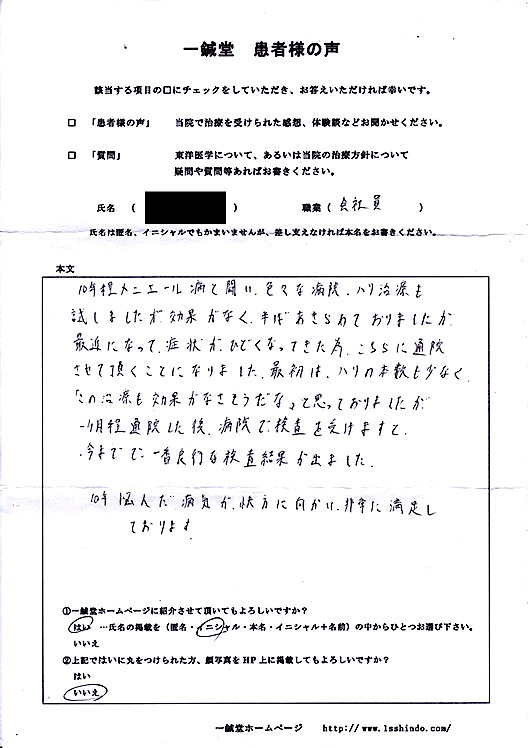 一鍼堂 患者様の声
該当する項目の□にチェックをしていただき、お答えいただければ幸いです。
□ 「患者様の声」 当院で治療を受けられた感想、体験談などお聞かせください。
□ 「質問」 東洋医学について、あるいは当院の治療方針について
疑問や質問等あればお書きください。
氏名 ( ) 職業 ( 会社員 )
氏名は匿名、イニシャルでもかまいませんが、差し支えなければ本名をお書きください。
本文
10年程メニエール病と闘い、色々な病院、ハリ治療も
試しましたが効果がなく、半ばあきらめておりましたが
最近になって、症状がひどくなってきた為、こちらに通院
させて頂くことになりました。最初は、ハリの本数も少なく、
「この治療も効果がなさそうだな」と思っておりましたが
一ヶ月程通院した後、病院で検査を受けますと、
今までで一番良好な検査結果が出ました。
10年悩んだ病気が、快方に向かい、非常に満足し
ております。
①一鍼堂ホームページに紹介させて頂いてもよろしいですか?
はい …氏名の掲載を(匿名・イニシャル・本名・イニシャル+名前)の中からひとつお選び下さい。
いいえ
②上記ではいに丸をつけられた方、顔写真をHP上に掲載してもよろしいですか?
はい
いいえ
一鍼堂ホームページ http://www.1sshindo.com/